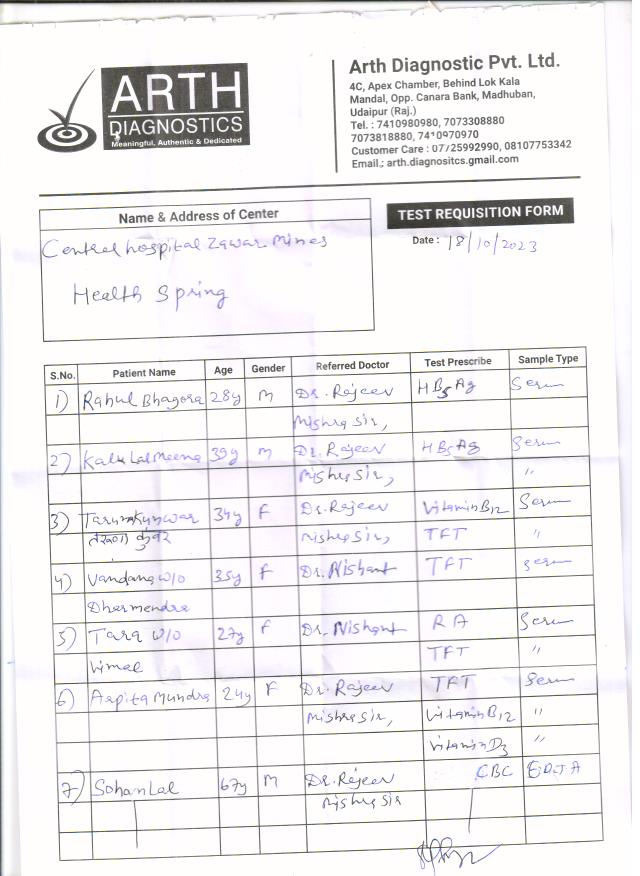 ARTH
DIAGNOSTICS
Meaningful, Authentic & Dedicated
Arth Diagnostic Pvt. Ltd.
4C, Apex Chamber, Behind Lok Kala
Mandal, Opp. Canara Bank, Madhuban,
Udaipur (Raj.)
Tel. : 7410980980, 7073308880
7073818880, 7410970970
Customer Care : 07725992990, 08107753342
Email.; arth.diagnositcs.gmail.com
Name & Address of Center
Central hospital Zawar Mines
Health Spring
TEST REQUISITION FORM
Date : 18/10/2023
S.No. Patient Name Age Gender Referred Doctor Test Prescribe Sample Type
1) Rahul Bhagora 28y M Dr. Rajeev HBsAg Serum
Mishra Sir,
2) Kalu Lal Meena 39y M Dr. Rajeev HBsAg Serum
Mishra Sir, "
3) Tarunakunwar 34y F Dr. Rajeev Vitamin B12 Serum
कुंवर Mishra Sir, TFT "
4) Vandana w/o 35y F Dr. Nishant TFT Serum
Dharmendra
5) Tara w/o 27y F Dr. Nishant RA Serum
Vimal TFT "
6) Arpita Mundra 24y F Dr. Rajeev TFT Serum
Mishra Sir, Vitamin B12 "
Vitamin D3 "
7) Sohan Lal 67y M Dr. Rajeev CBC E.D.T.A
Mishra Sir